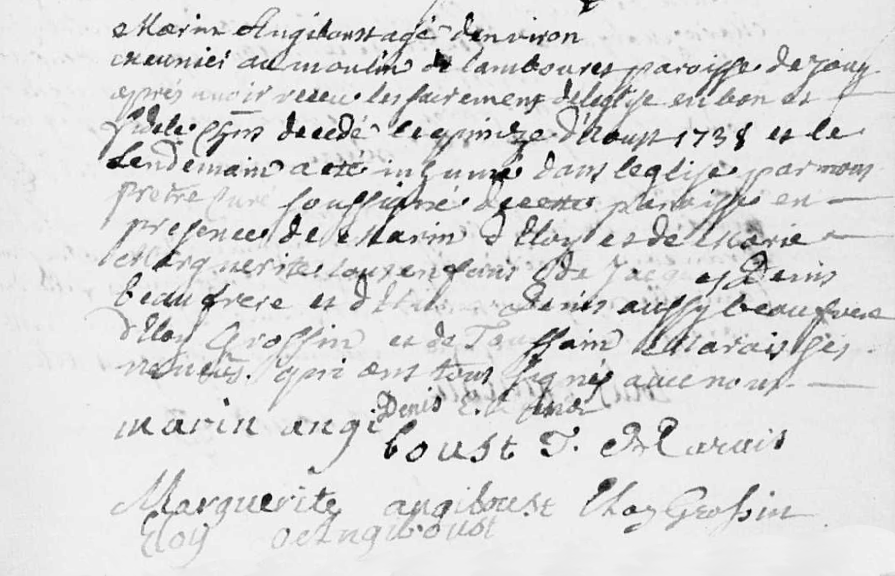 Marin Angiboust agé denviron
meunier au moulin de lambouret paroisse de Jouy
aprés avoir receu les sacrements de leglise en bon et
fidele decedé le quinze d'Aoust 1738 et le
lendemain a eté inhumé dans leglise par nous
prêtre curé soussigné de cette paroisse en
presence de Marin d'Eloy et de Marie
Marguerite tous enfans de Jacques Denis
beaufrere et d' Denis aussy beaufrere
d'Eloy Grossin et de Toussain Marais ses
neveus. qui ont tous signés avec nous
marin angiboust Denis T. Marais
Marguerite angiboust Eloy Grossin
Eloy Angiboust